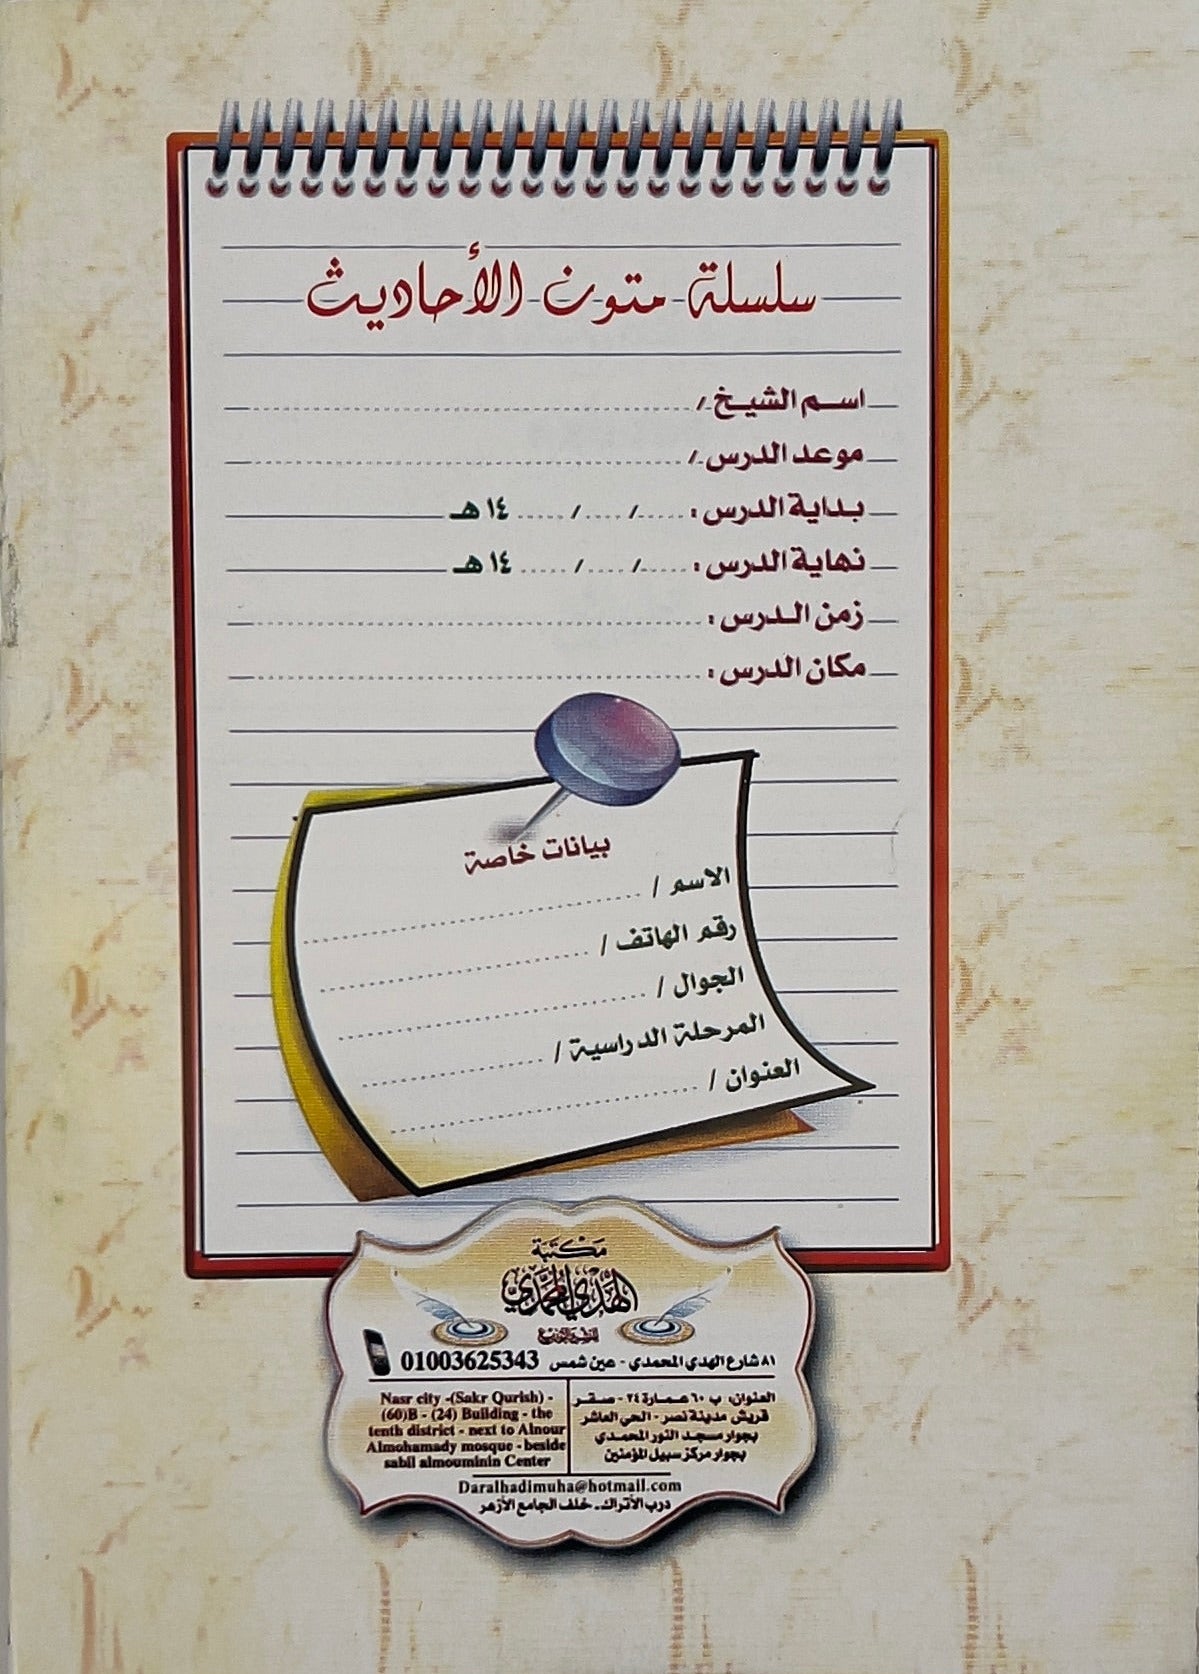 سلسلة متون الأحاديث
اسم الشيخ /
موعد الدرس /
بداية الدرس : / / ١٤ هـ
نهاية الدرس : / / ١٤ هـ
زمن الدرس :
مكان الدرس :
بيانات خاصة
الاسم /
رقم الهاتف /
الجوال /
المرحلة الدراسية /
العنوان /
مكتبة
الهدي المحمدي
للنشر والتوزيع
٨١ شارع الهدي المحمدي - عين شمس 01003625343
العنوان: ب ٦٠ عمارة ٢٤ - صقر
قريش مدينة نصر - الحي العاشر
بجوار مسجد النور المحمدي
بجوار مركز سبيل المؤمنين
Nasr city -(Sakr Qurish) -
(60)B - (24) Building - the
tenth district - next to Alnour
Almohamady mosque - beside
sabil almouminin Center
Daralhadimuha@hotmail.com
درب الأتراك - خلف الجامع الأزهر